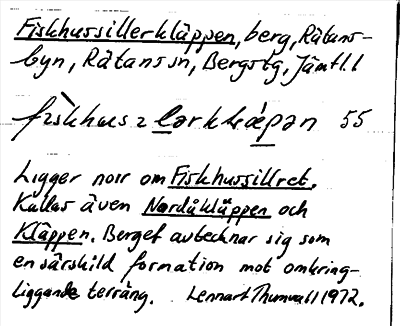 Fiskhussillerkläppen, berg, Rätans-
byn, Rätans sn, Bergs tg, Jämtl. l
55
Ligger norr om Fiskhussillret.
Kallas även Nordåkläppen och
Kläppen. Berget avtecknar sig som
en särskild formation mot omkring-
liggande terräng. Lennart Thunvall 1972.